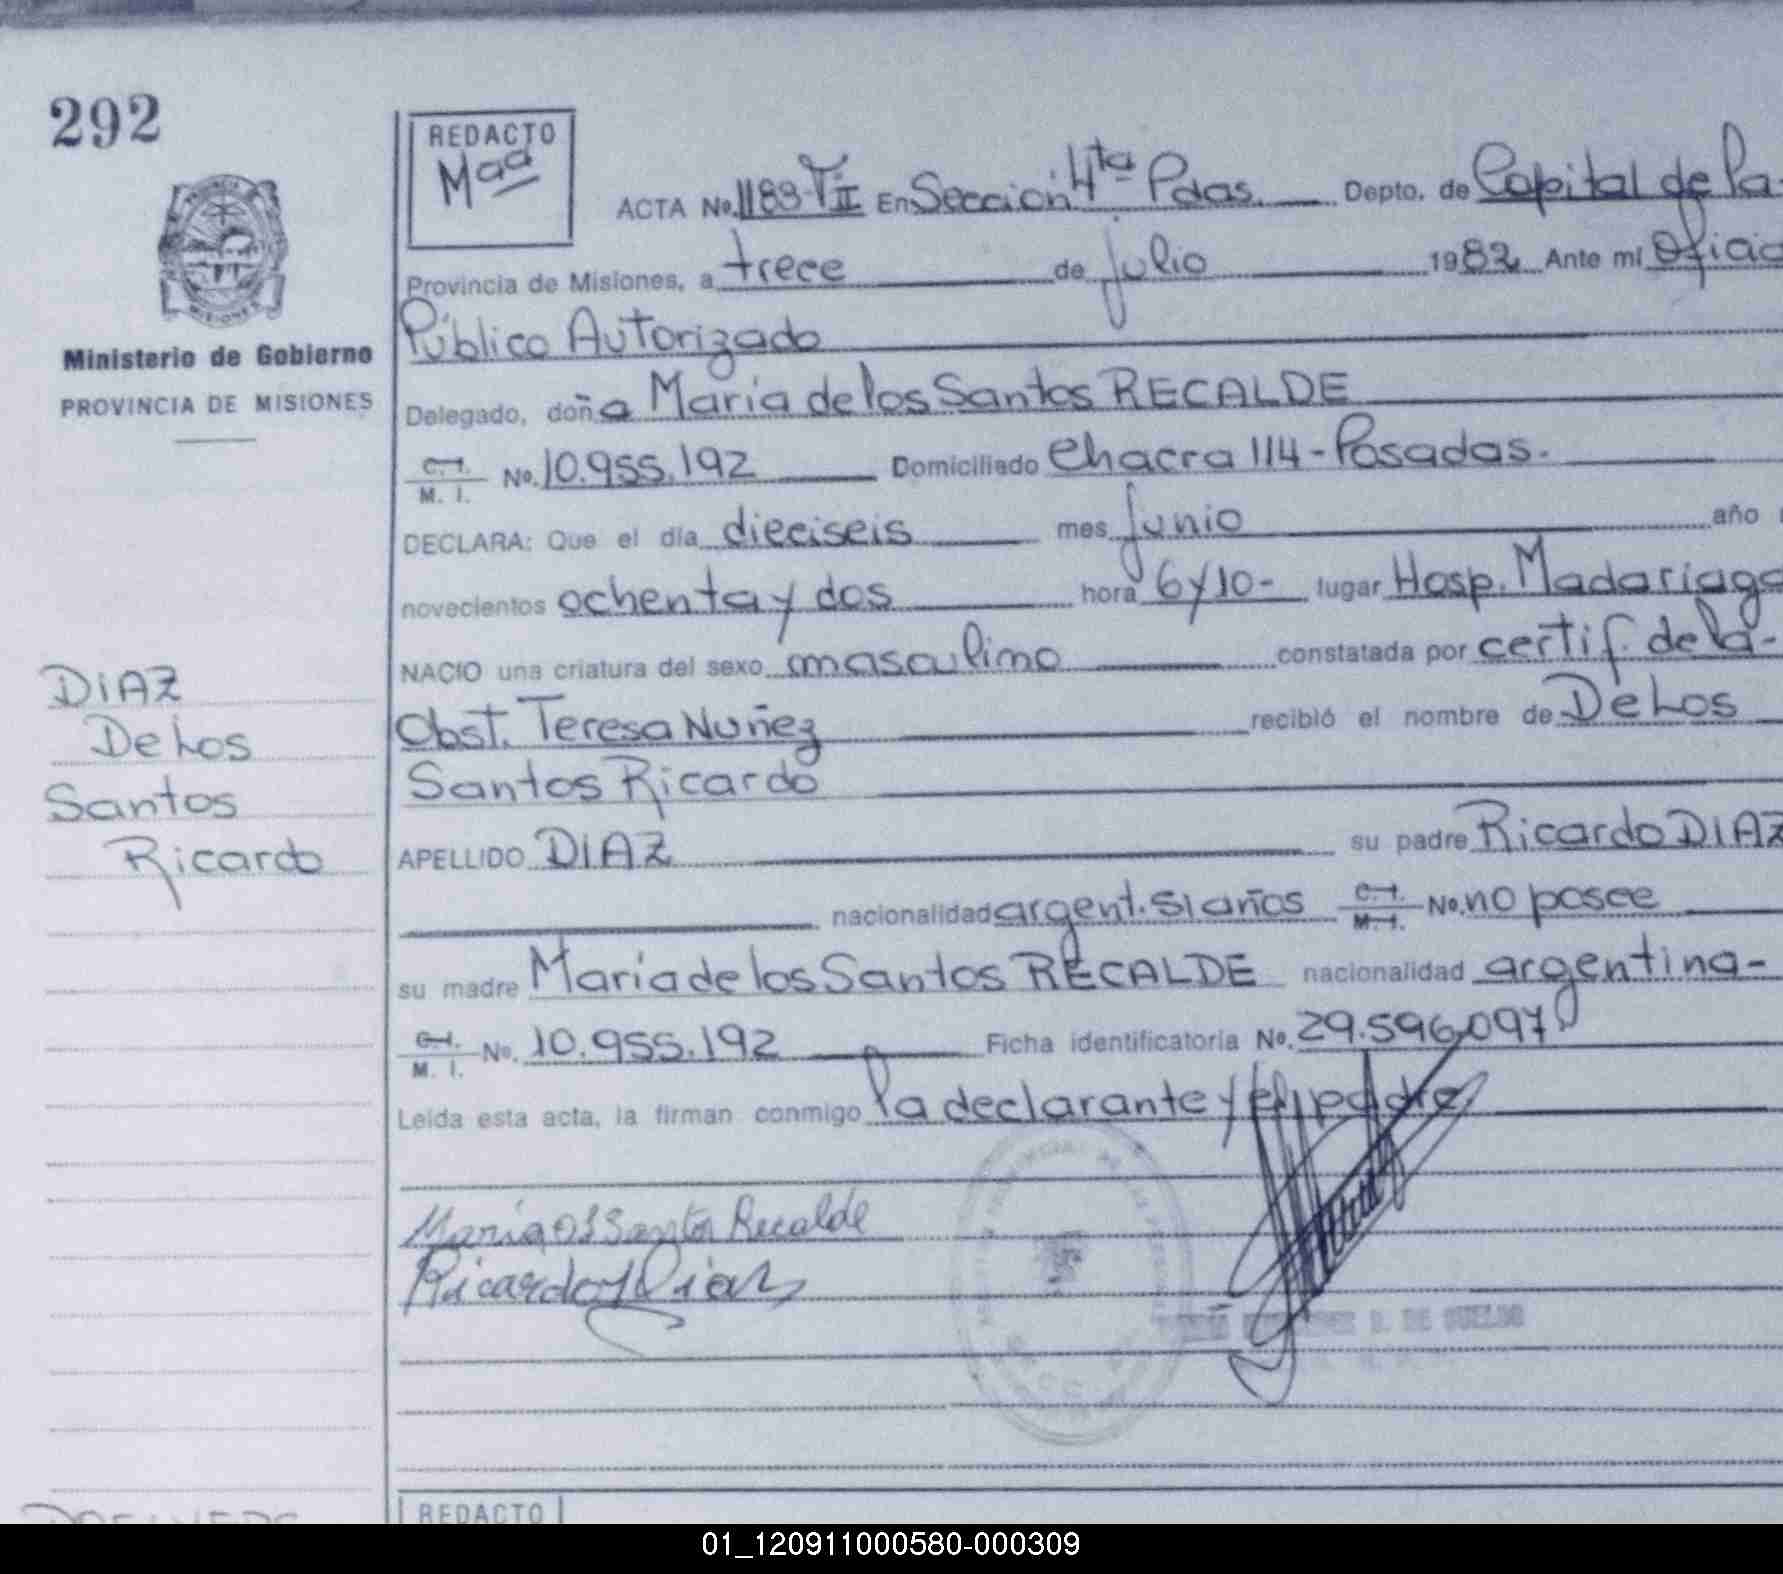 292
REDACTO
Maa
ACTA No. 1183-TII En Sección 4ta Pdas. Depto. de Capital de la
Provincia de Misiones, a trece de julio 1982 Ante mí Oficial
Público Autorizado
Ministerio de Gobierno
PROVINCIA DE MISIONES
Delegado, doña María de los Santos RECALDE
C.I. M. I. No. 10.955.192 Domiciliado Chacra 114-Posadas.
DECLARA: Que el día dieciseis mes Junio año
novecientos ochenta y dos hora 6y10- lugar Hosp. Madariaga
NACIO una criatura del sexo masculino constatada por certif. de la-
Obst. Teresa Nuñez recibió el nombre de De Los
Santos Ricardo
DIAZ
De Los
Santos
Ricardo
APELLIDO DIAZ su padre Ricardo DIAZ
nacionalidad argent. 51 años C.I. M.I. No. no posee
su madre María de los Santos RECALDE nacionalidad argentina-
C.I. M. I. No. 10.955.192 Ficha identificatoria No. 29.596.097
Leída esta acta, la firman conmigo la declarante y el padre
María Santos Recalde
Ricardo Diaz
REDACTO
01_120911000580-000309